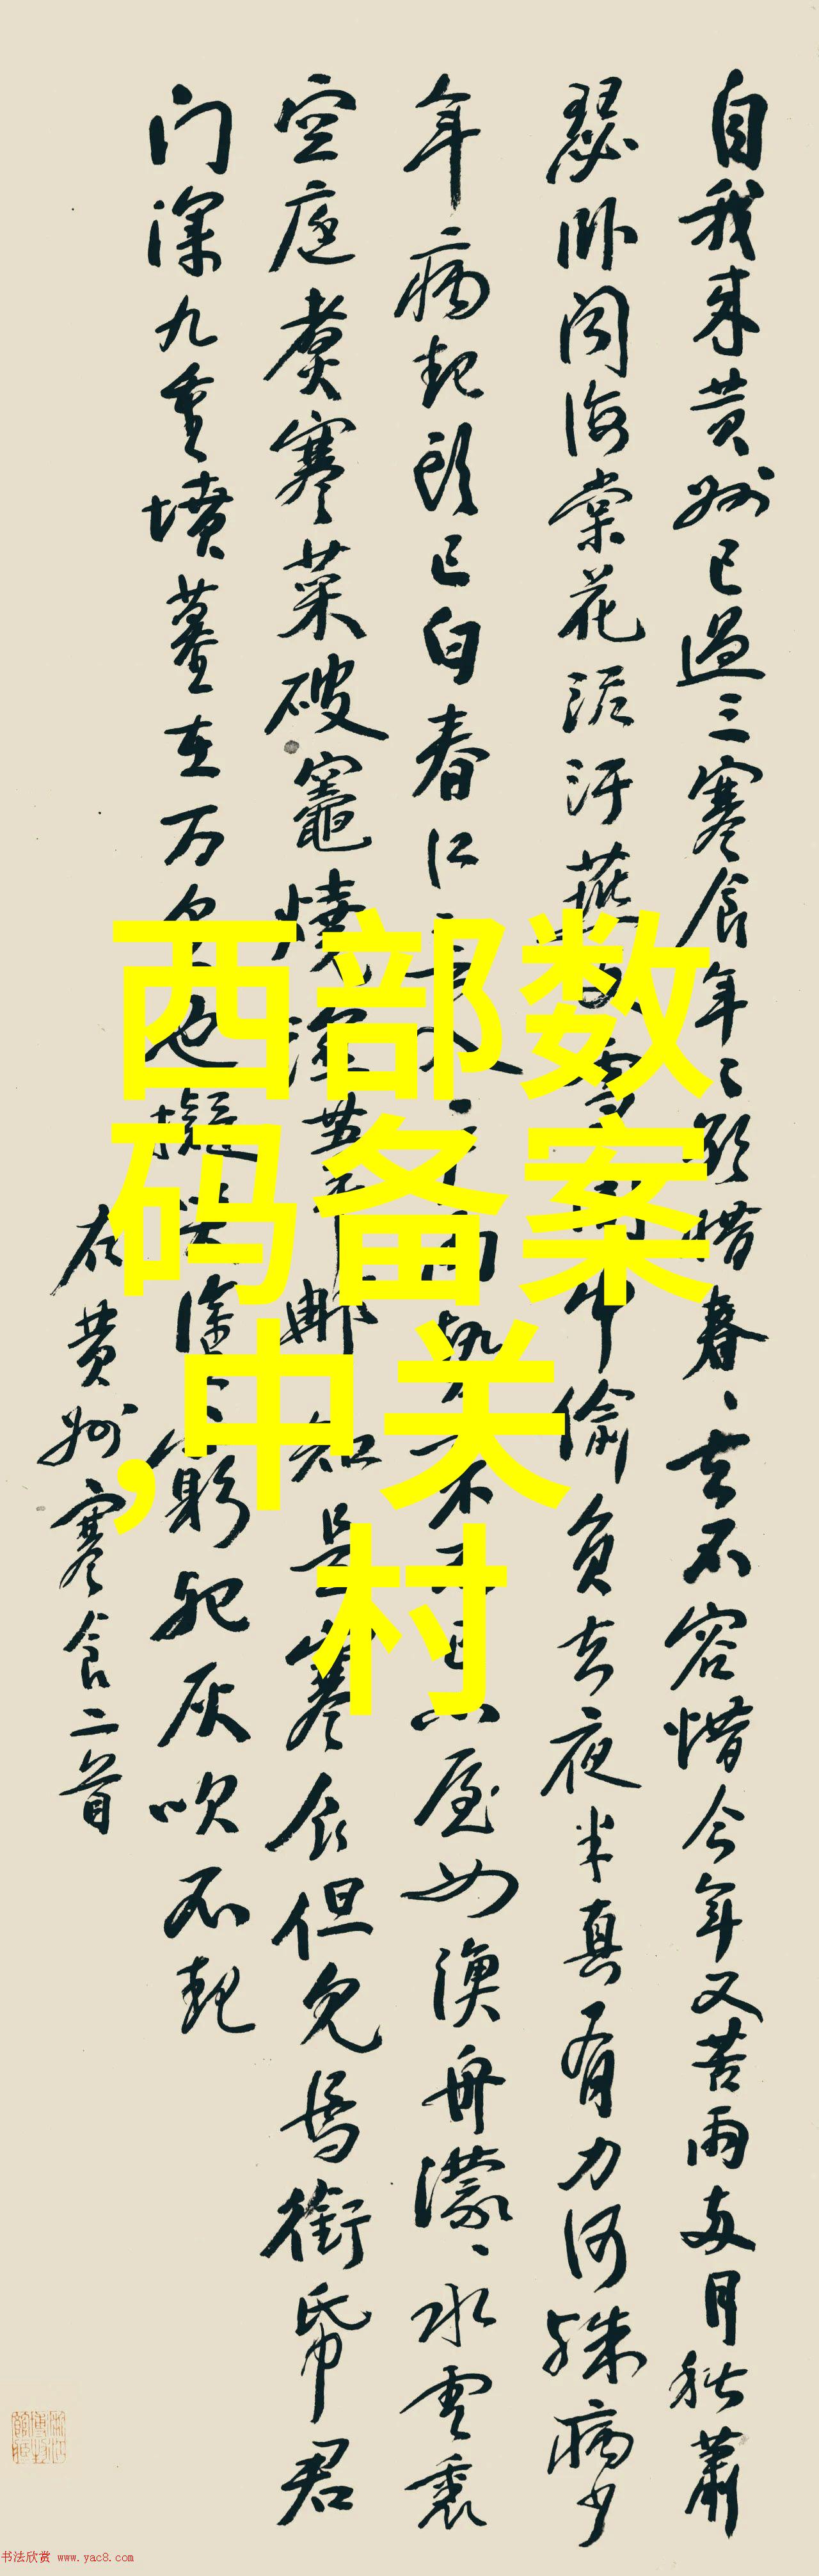 自我来黄州已过三寒食年々欲惜春々去不容惜今年又苦雨两月秋萧
瑟卧闻海棠花泥污燕支雪闇中偷负去夜半真有力何殊病少
年病起头已白春江欲入户雨势来不已小屋如渔舟濛々水云里
空庖煮寒菜破竈烧湿苇那知是寒食但见乌衔帋君
门深九重坟墓在万里也拟哭涂穷死灰吹不起
在黄州寒食二首
西部数
码备案
,中关
村
书法欣赏 www.yac8.com